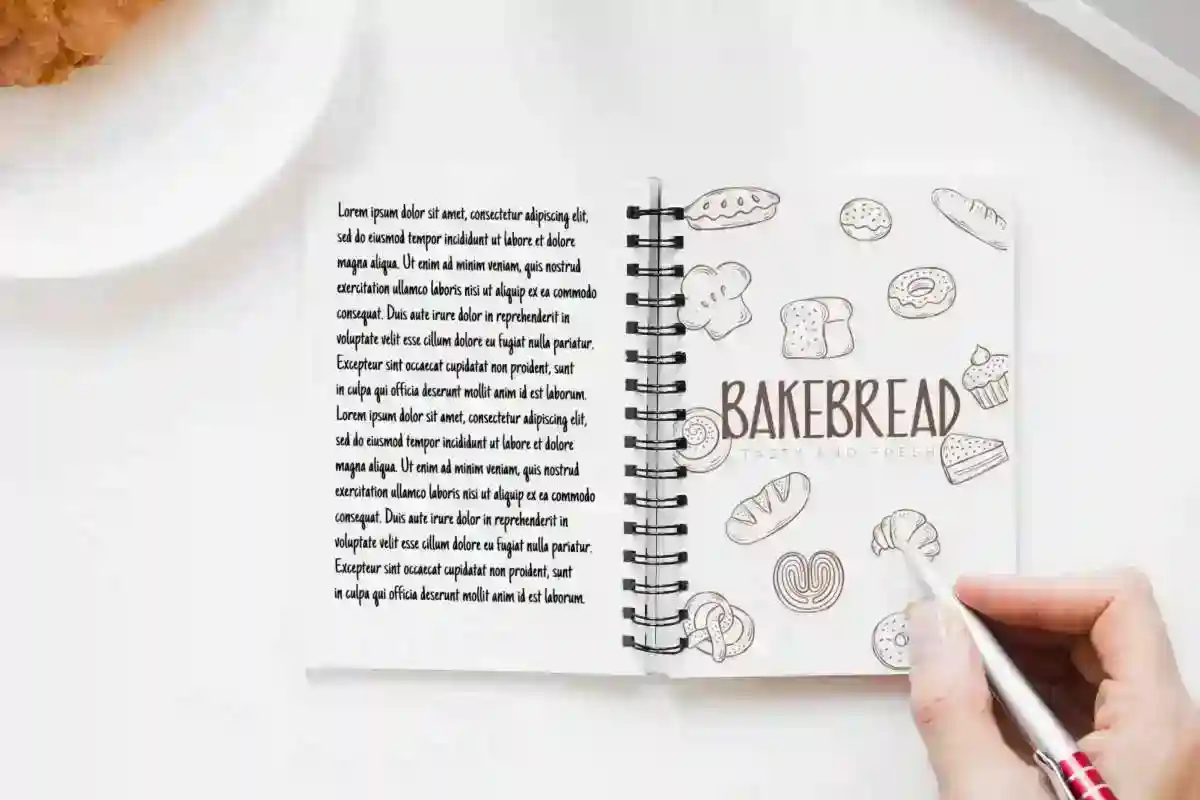 Lorem ipsum dolor sit amet, consectetur adipiscing elit,
sed do eiusmod tempor incididunt ut labore et dolore
magna aliqua. Ut enim ad minim veniam, quis nostrud
exercitation ullamco laboris nisi ut aliquip ex ea commodo
consequat. Duis aute irure dolor in reprehenderit in
voluptate velit esse cillum dolore eu fugiat nulla pariatur.
Excepteur sint occaecat cupidatat non proident, sunt
in culpa qui officia deserunt mollit anim id est laborum.
Lorem ipsum dolor sit amet, consectetur adipiscing elit,
sed do eiusmod tempor incididunt ut labore et dolore
magna aliqua. Ut enim ad minim veniam, quis nostrud
exercitation ullamco laboris nisi ut aliquip ex ea commodo
consequat. Duis aute irure dolor in reprehenderit in
voluptate velit esse cillum dolore eu fugiat nulla pariatur.
Excepteur sint occaecat cupidatat non proident, sunt
in culpa qui officia deserunt mollit anim id est laborum.
BAKEBREAD
TASTY AND FRESH